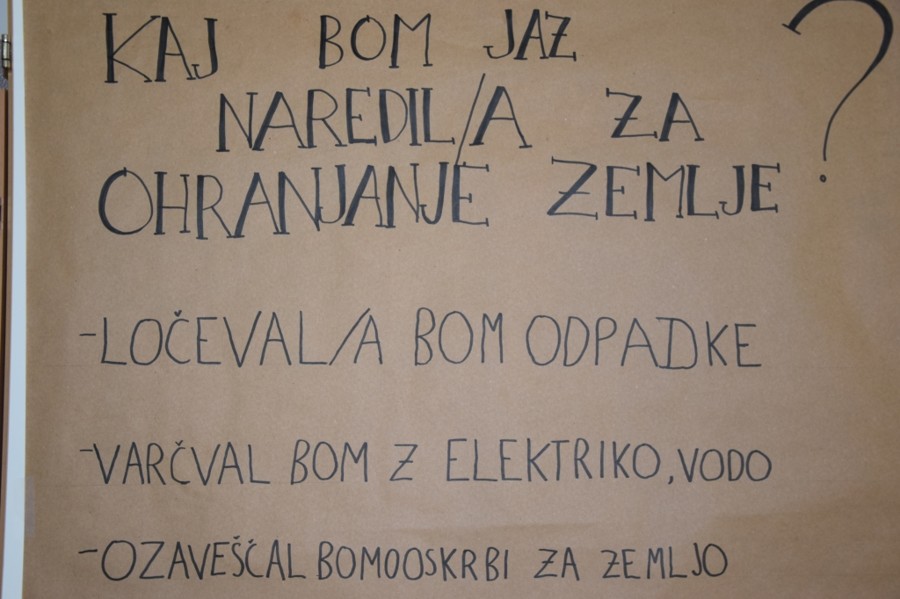 KAJ BOM JAZ
NAREDIL/A ZA
OHRANJANJE ZEMLJE?
-LOČEVAL/A BOM ODPADKE
-VARČVAL BOM Z ELEKTRIKO, VODO
-OZAVEŠČAL BOMOOSKRBI ZA ZEMLJO